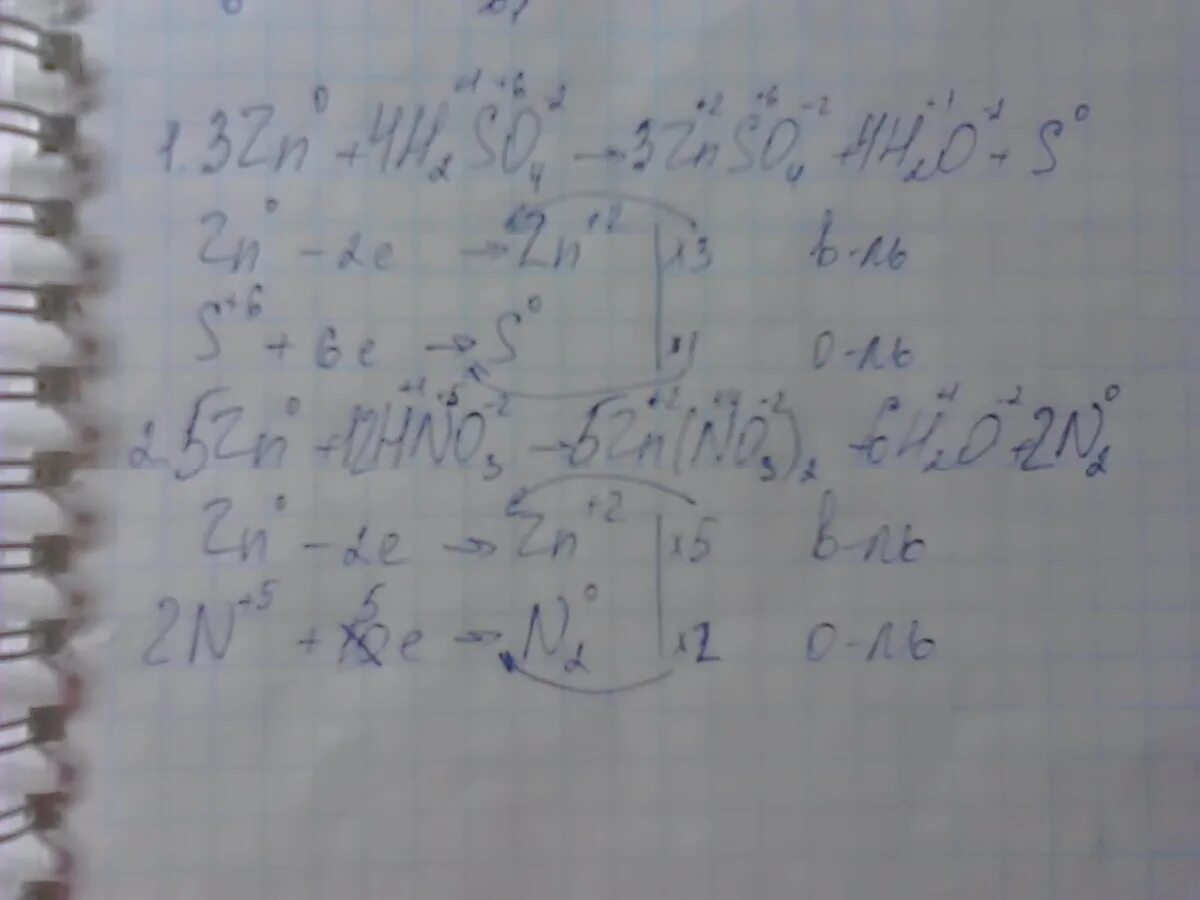 1. 3Zn⁰ + 4H₂⁺¹S⁺⁶O₄⁻² → 3Zn⁺²S⁺⁶O₄⁻² + 4H₂⁺¹O⁻² + S⁰
Zn⁰ - 2e → Zn⁺² | x3 в-ль
S⁺⁶ + 6e → S⁰ | x1 о-ль
2. 5Zn⁰ + 12H⁺¹N⁺⁵O₃⁻² → 5Zn⁺²(NO₃⁻²)₂ + 6H₂⁺¹O⁻² + 2N₂⁰
Zn⁰ - 2e → Zn⁺² | x5 в-ль
2N⁺⁵ + 5e → N₂⁰ | x2 о-ль